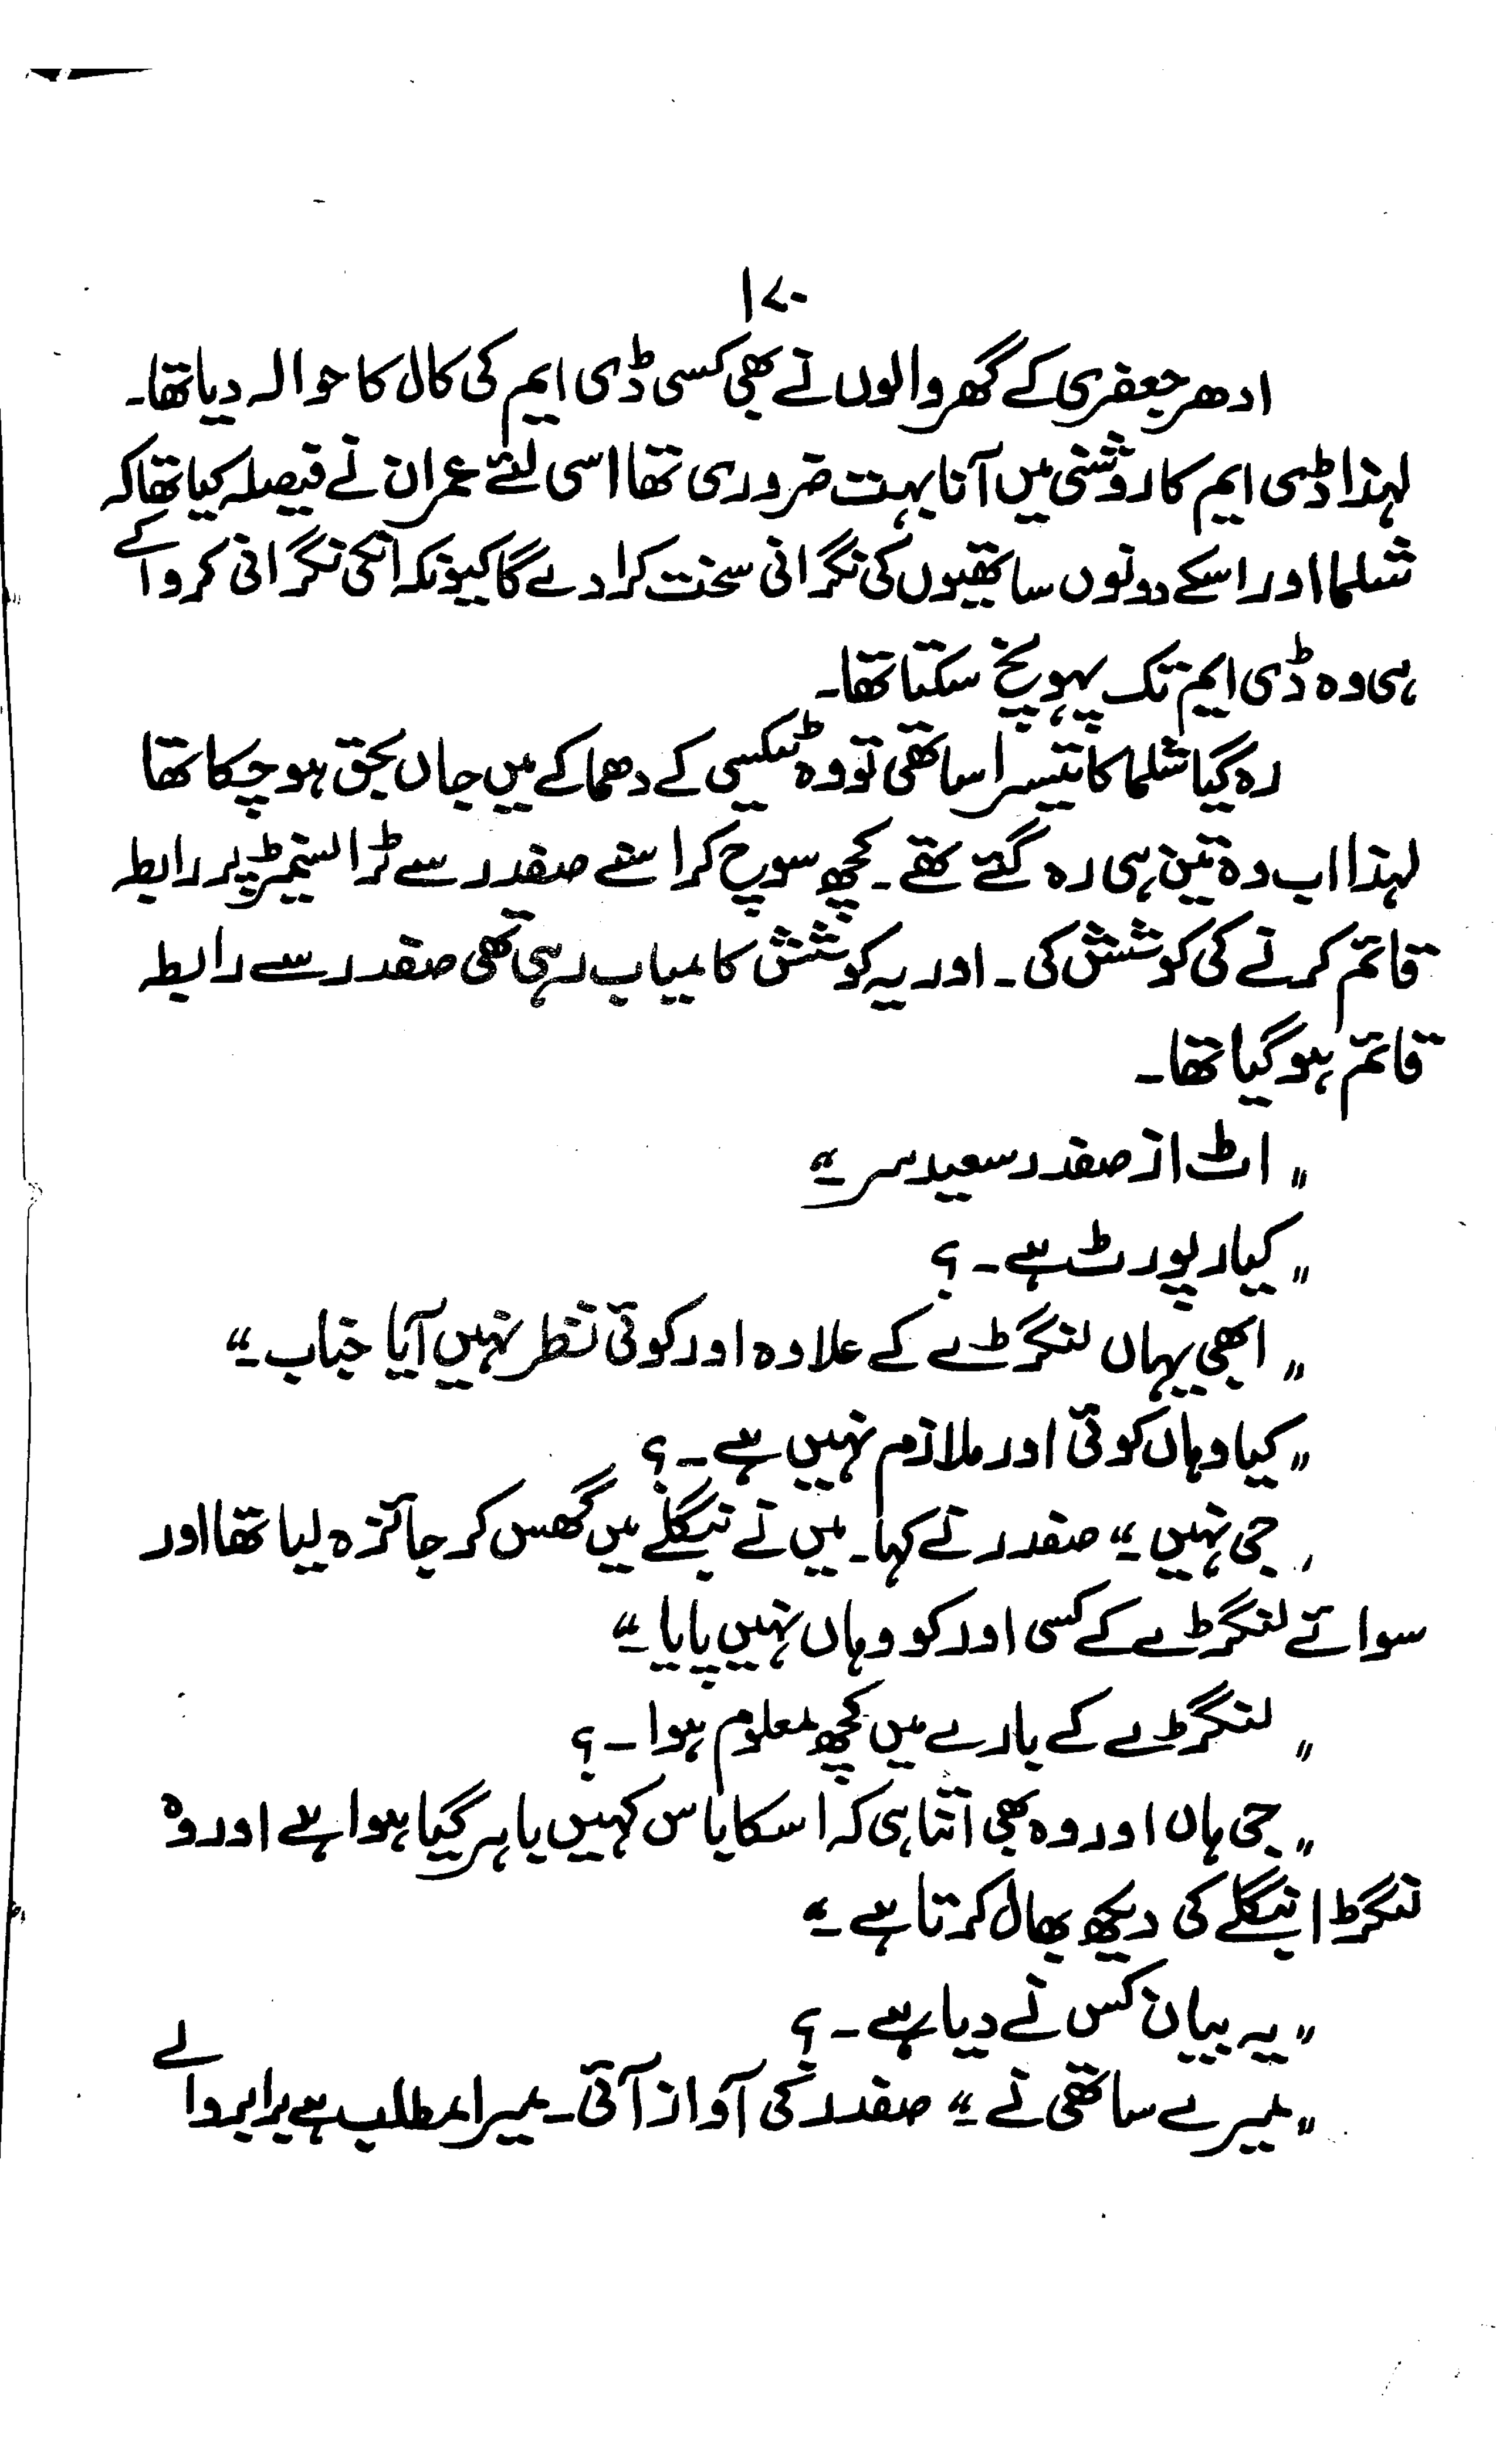 ۱۷۰
ادھر جعفری کے گھر والوں نے بھی کسی ڈی ایم کی کال کا حوالہ دیا تھا۔
لہذا ڈی ایم کا روشنی میں آنا بہت ضروری تھا اسی لئے عمران نے فیصلہ کیا تھا کہ
شلما اور اسکے دونوں ساتھیوں کی نگرانی سخت کرا دے گا کیونکہ انکی نگرانی کروا کے
ہی وہ ڈی ایم تک پہونچ سکتا تھا۔
رہ گیا شلما کا تیسرا ساتھی تو وہ ٹیکسی کے دھماکے میں جاں بحق ہو چکا تھا
لہذا اب وہ تین ہی رہ گئے تھے۔ کچھ سوچ کر اسنے صفدر سے ٹرانسمیٹر پر رابطہ
قائم کرنے کی کوشش کی۔ اور یہ کوشش کامیاب رہی تھی صفدر سے رابطہ
قائم ہو گیا تھا۔
" اٹ از صفدر سعید سر۔"
" کیا رپورٹ ہے۔؟
" ابھی یہاں لنگڑے کے علاوہ اور کوئی نظر نہیں آیا جناب۔"
" کیا وہاں کوئی اور ملازم نہیں ہے۔؟
" جی نہیں۔" صفدر نے کہا۔ میں نے بنگلے میں گھس کر جائزہ لیا تھا اور
سوائے لنگڑے کے کسی اور کو وہاں نہیں پایا۔"
" لنگڑے کے بارے میں کچھ معلوم ہوا۔؟
" جی ہاں اور وہ بھی اتنا ہی کہ اسکا باس کہیں باہر گیا ہوا ہے اور وہ
لنگڑا بنگلے کی دیکھ بھال کرتا ہے۔"
" یہ بیان کس نے دیا ہے۔؟
" میرے ساتھی نے۔" صفدر کی آواز آئی۔ میرا مطلب ہے برابر والے